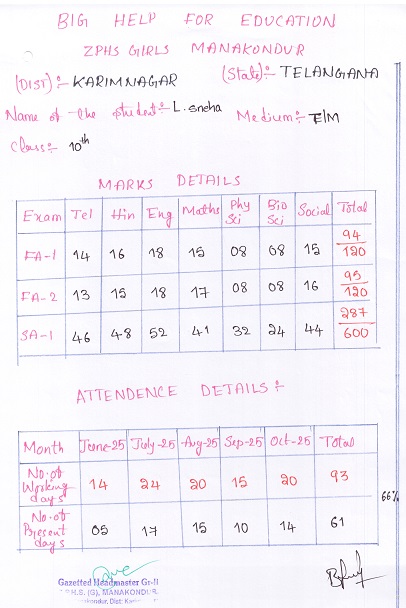 BIG HELP FOR EDUCATION
ZPHS GIRLS MANAKONDUR
(DIST):- KARIMNAGAR (State):- TELANGANA
Name of the student:- L. sneha Medium:- E/M
Class:- 10th
MARKS DETAILS
Exam Tel Hin Eng Maths Phy Sci Bio Sci Social Total
FA-1 14 16 18 15 08 08 15 94/120
FA-2 13 15 18 17 08 08 16 95/120
SA-1 46 48 52 41 32 24 44 287/600
ATTENDENCE DETAILS:-
Month June-25 July-25 Aug-25 Sep-25 Oct-25 Total
No. of Working days 14 24 20 15 20 93
No. of Present days 05 17 15 10 14 61
66%
Gazetted Headmaster Gr-II
P.H.S. (G), MANAKONDUR